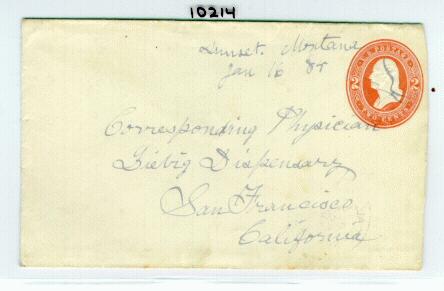 10214
Sunset, Montana
Jan 16 85
U.S. POSTAGE
2 2
TWO CENTS
Corresponding Physician
Liebig Dispensary
San Francisco
California